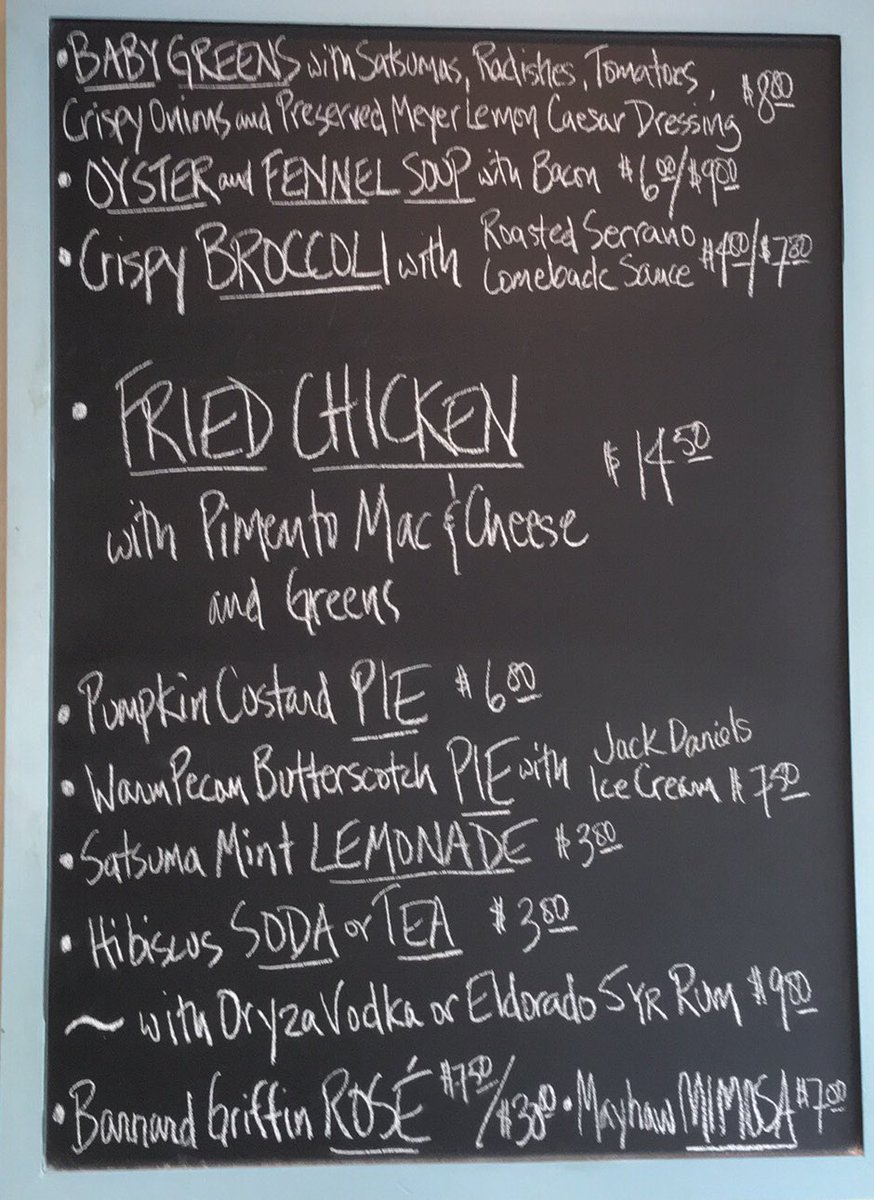 • BABY GREENS with Satsumas, Radishes, Tomatoes,
Crispy Onions and Preserved Meyer Lemon Caesar Dressing $8.80
• OYSTER and FENNEL SOUP with Bacon $6.00/$9.00
• Crispy BROCCOLI with Roasted Serrano
Comeback Sauce $4.80/$7.80
• FRIED CHICKEN
$14.50
with Pimento Mac & Cheese
and Greens
• Pumpkin Custard PIE $6.80
• Warm Pecan Butterscotch PIE with Jack Daniels
Ice Cream $7.50
• Satsuma Mint LEMONADE $3.80
• Hibiscus SODA or TEA $3.80
~ with Oryza Vodka or Eldorado 5yr Rum $9.80
• Barnard Griffin ROSÉ $7.50/$30.00 • Mayhaw MIMOSA $7.00